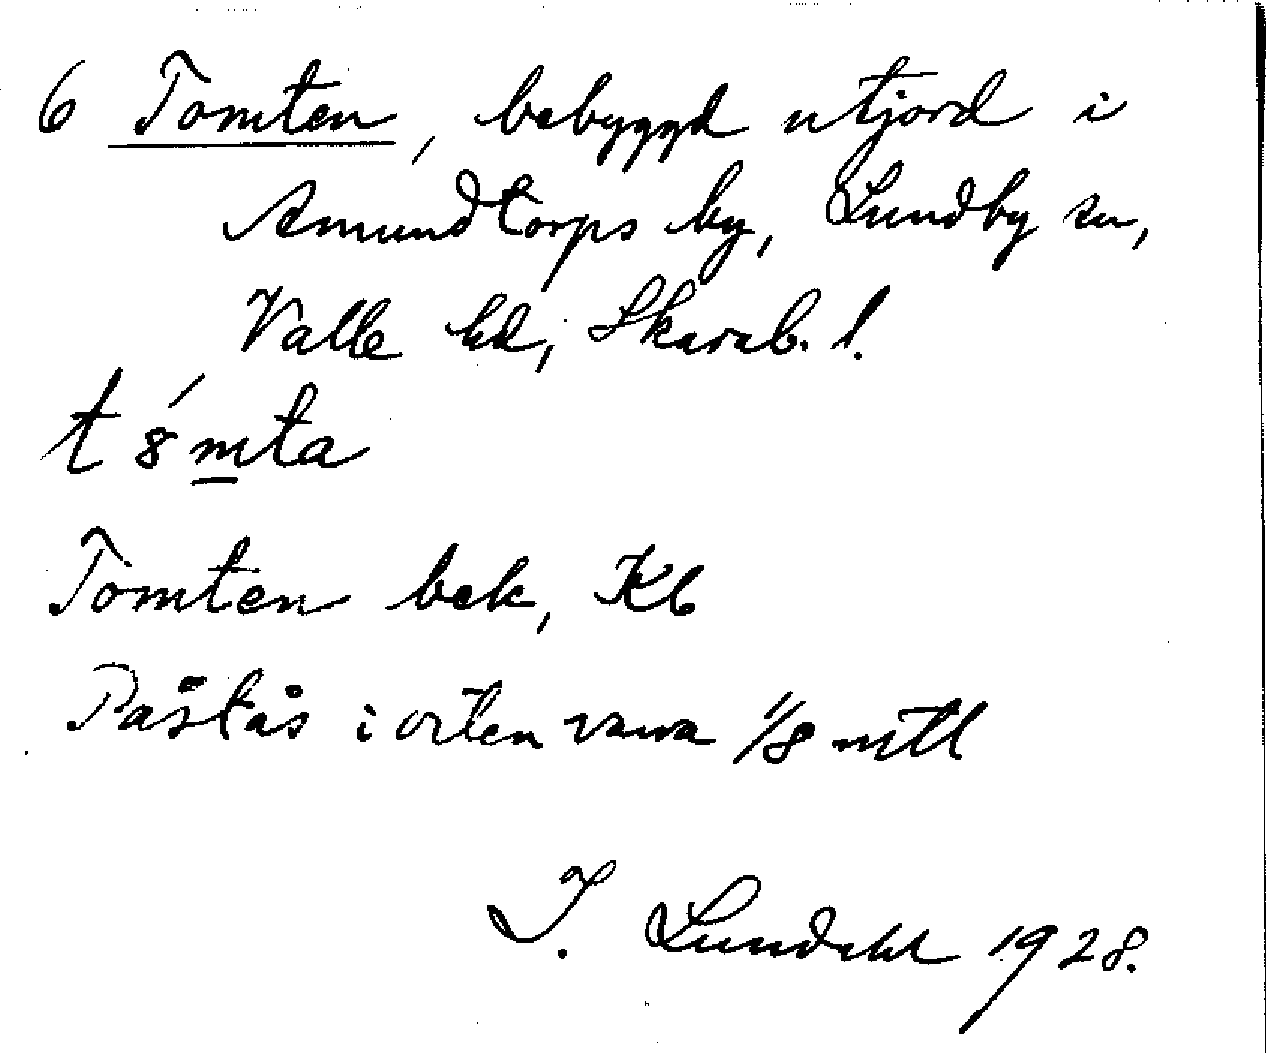 6 Tomten, bebyggd utjord i
Amundtorps by, Lundby sn,
Valle hd, Skarab. l.
t 8́ mta
Tomten bek, Kb
Påstås i orten vara 1/8 mtl
I. Lundahl 1928.